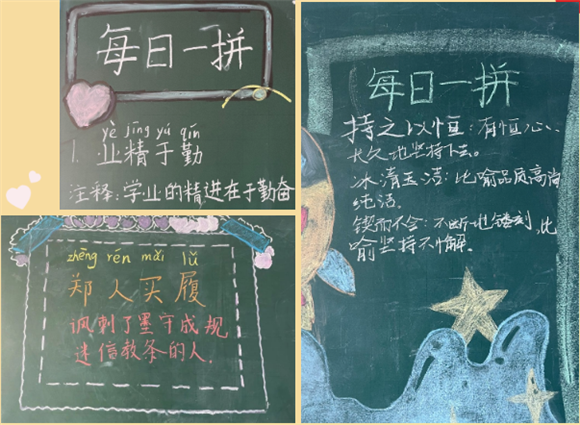 每日一拼
yè jīng yú qín
1. 业精于勤
注释:学业的精进在于勤奋
zhèng rén mǎi lǚ
郑人买履
讽刺了墨守成规
迷信教条的人.
每日一拼
持之以恒:有恒心、
长久地坚持下去。
冰清玉洁:比喻品质高尚
纯洁.
锲而不舍:不断地镂刻,比
喻坚持不懈.